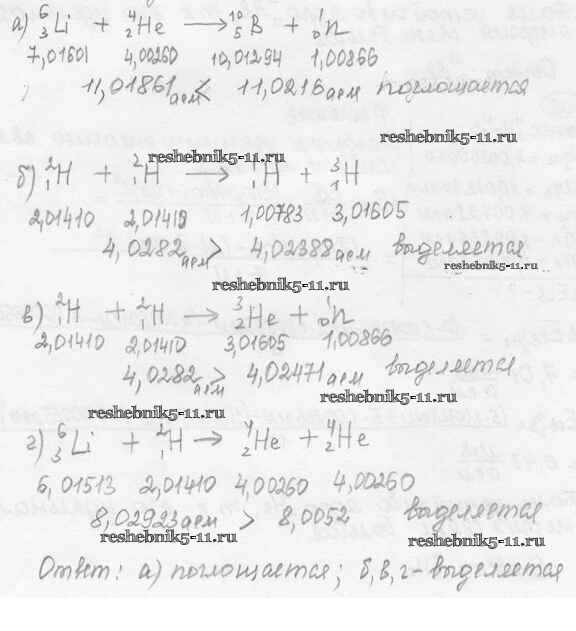 а) ⁶₃Li + ⁴₂He ⟶ ¹⁰₅B + ¹₀n
7,01601 4,00260 10,01294 1,00866
11,01861 аем < 11,0216 аем поглощается
reshebnik5-11.ru
reshebnik5-11.ru
б) ²₁H + ²₁H ⟶ ¹₁H + ³₁H
2,01410 2,01410 1,00783 3,01605
4,0282 аем > 4,02388 аем выделяется
reshebnik5-11.ru
reshebnik5-11.ru
в) ²₁H + ²₁H ⟶ ³₂He + ¹₀n
2,01410 2,01410 3,01605 1,00866
4,0282 аем > 4,02471 аем выделяется
reshebnik5-11.ru
reshebnik5-11.ru
г) ⁶₃Li + ²₁H → ⁴₂He + ⁴₂He
6,01513 2,01410 4,00260 4,00260
8,02923 аем > 8,0052 выделяется
reshebnik5-11.ru
reshebnik5-11.ru
Ответ: а) поглощается; б, в, г - выделяется